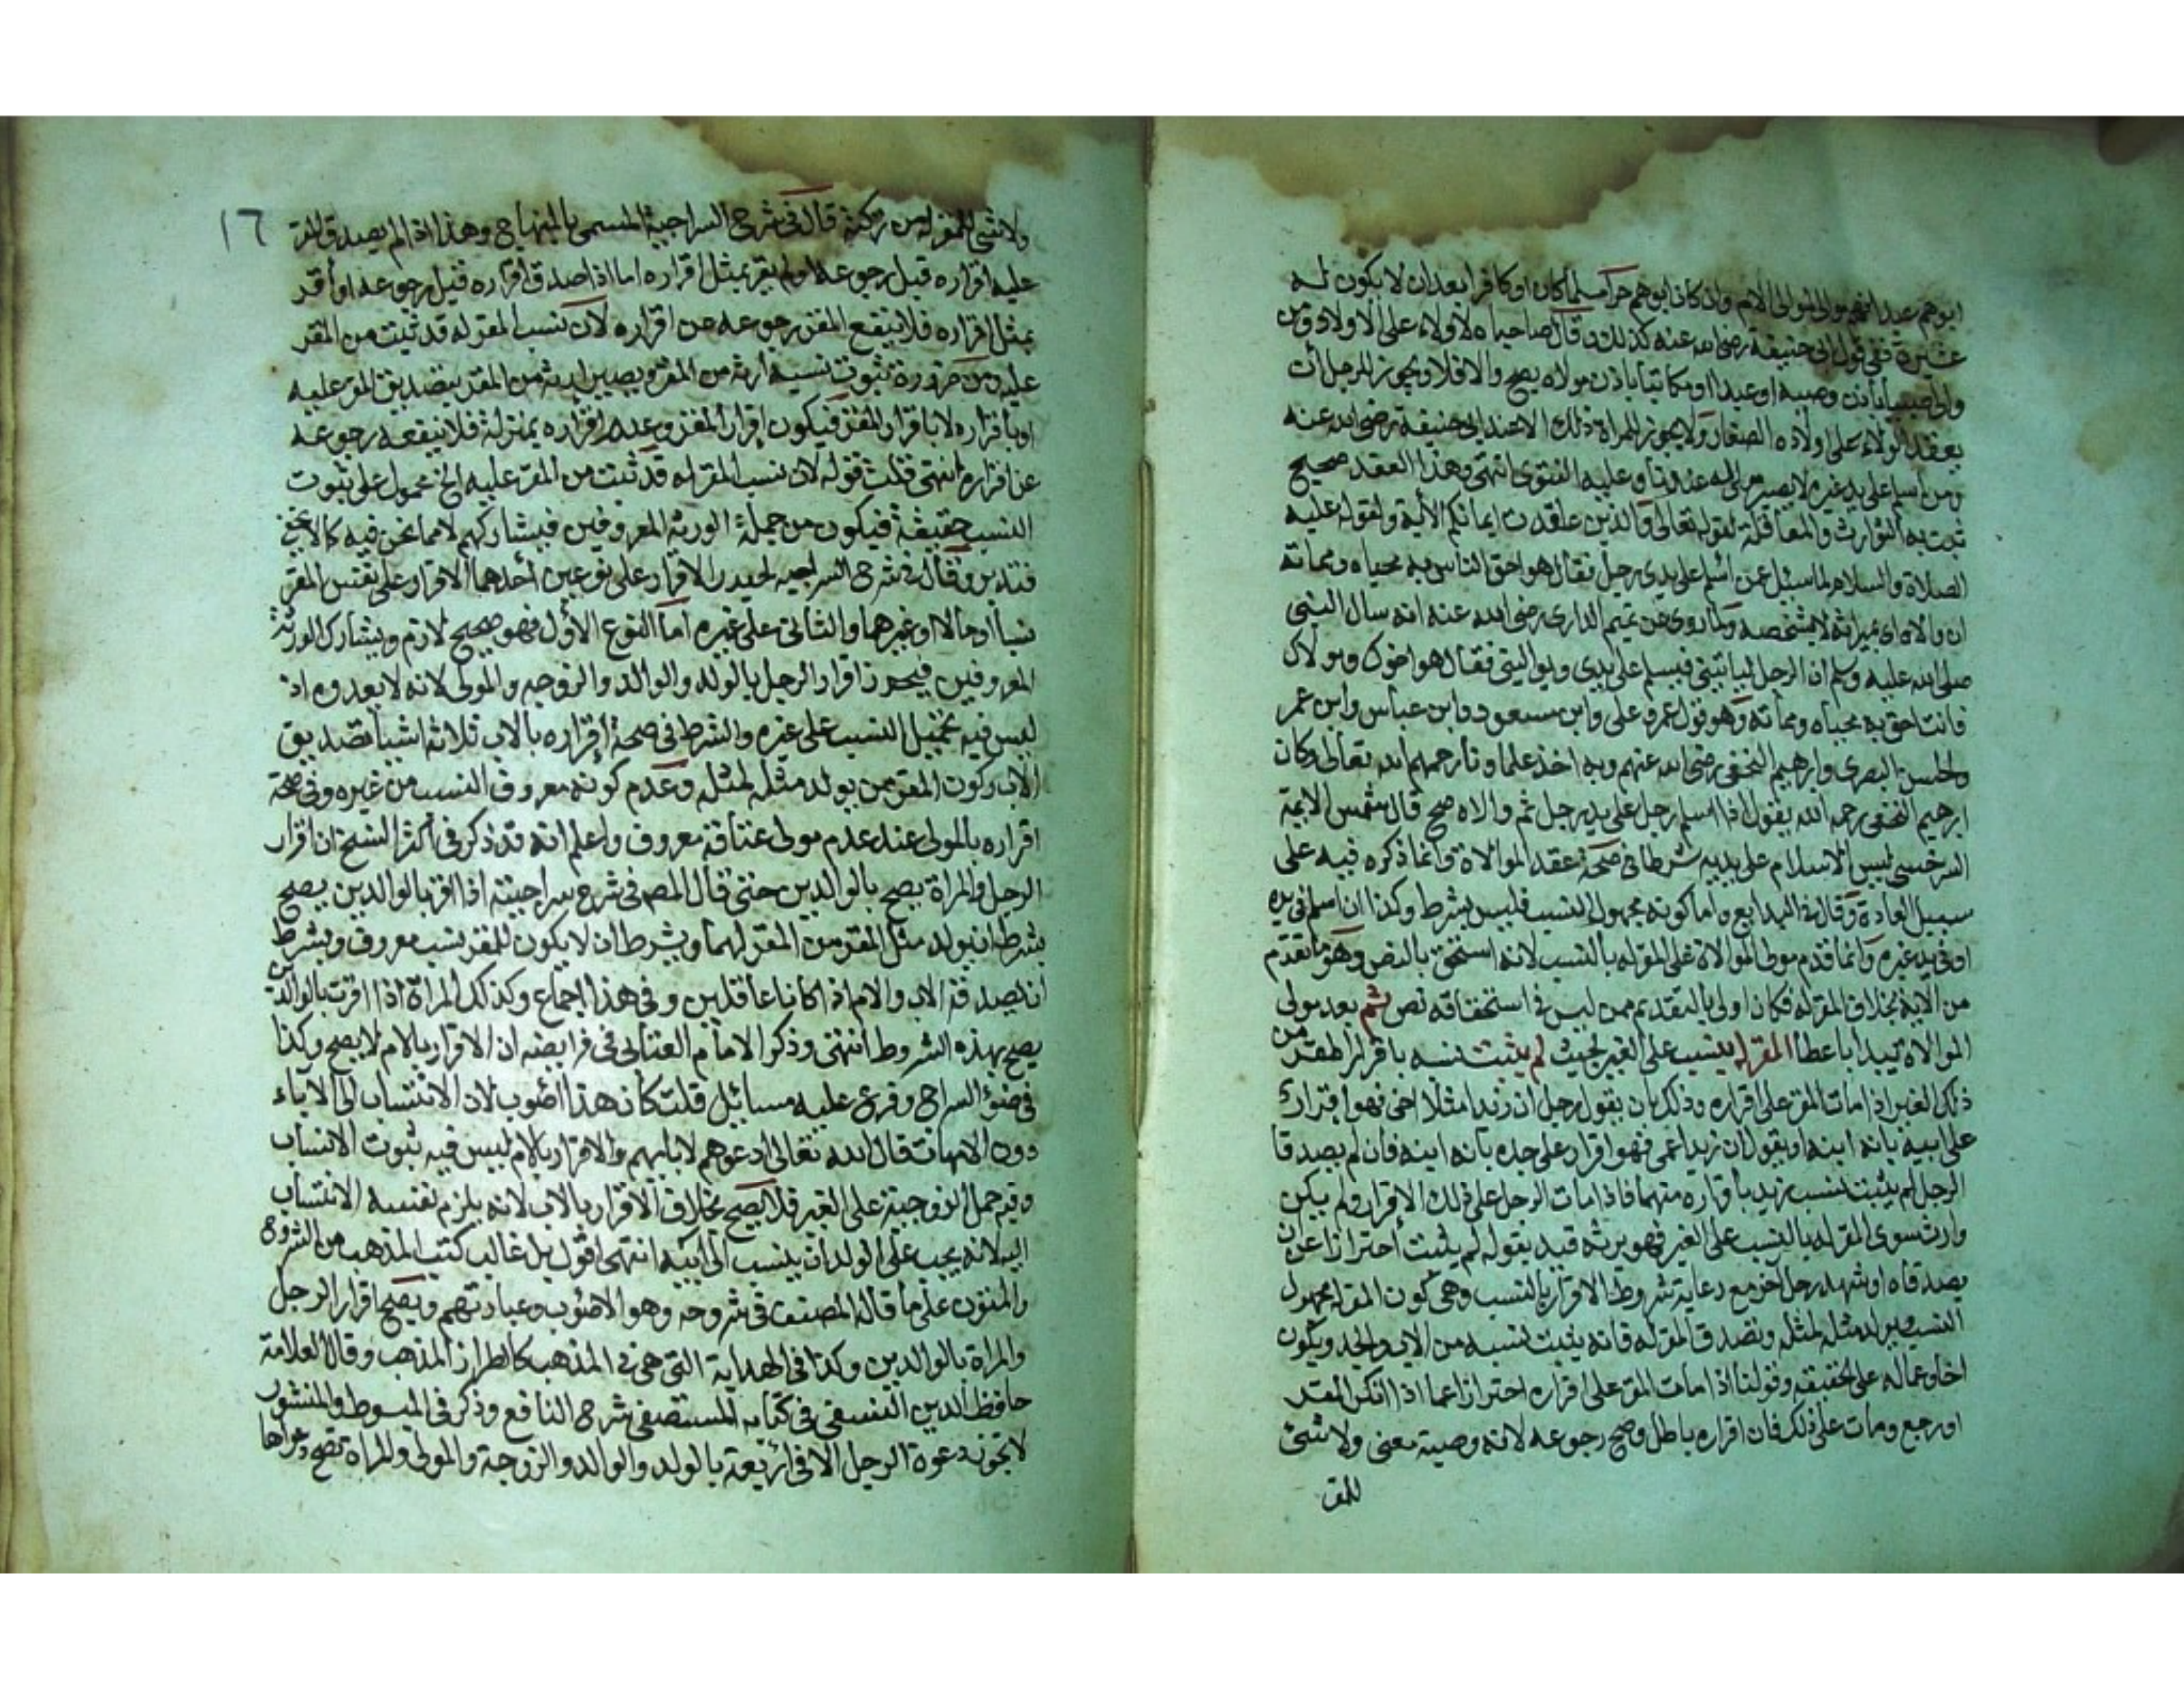 ابوهم عبدا فهو مولى لموالى الام وان كان ابوهم حرا مسلما كان او كافرا بعد ان لا يكون له
عشيرة ففي قول ابي حنيفة رضي الله عنه كذلك وقال صاحباه لا ولاء على الاولاد ومن
والى صبيا باذن وصيه او عبدا او مكاتبا باذن مولاه يصح والا فلا ويجوز للرجل أن
يعقد الولاء على اولاده الصغار ولا يجوز للمراة ذلك الا عند ابي حنيفة رضي الله عنه
ومن اسلم على يد غيره لا يصير مولى له عندنا وعليه الفتوى انتهى وهذا العقد صحيح
ثبت به التوارث والمعاقلة لقوله تعالى والذين عاقدت ايمانكم الأية ولقوله عليه
الصلاة والسلام لما سئل عمن اسلم على يدي رجل فقال هو احق الناس به محياه ومماته
ان والاه اى بميراثه لا بشخصه ولما روى عن تميم الدارى رضي الله عنه انه سال النبى
صلى الله عليه وسلم ان الرجل لياتيني فيسلم على يدى ويواليني فقال هو اخوك ومولاك
فانت احق به محياه ومماته وهو قول عمر وعلى وابن مسعود وابن عباس وابن عمر
والحسن البصرى وابرهيم النخعى رضي الله عنهم وبه اخذ علماونا رحمهم الله تعالى وكان
ابرهيم النخعى رحمه الله يقول اذا اسلم رجل على يد رجل ثم والاه صح قال شمس الايمة
السرخسى ليس الاسلام على يديه شرطا في صحة عقد الموالاة وانما ذكره فيه على
سبيل العادة وقال في البدايع واما كونه مجهول النسب فليس بشرط وكذا ان اسلم في يده
او في يد غيره وانما قدم مولى الموالاة على المقر له بالنسب لانه استحق بالنص وهو ما تقدم
من الاية بخلاف المقر له فكان اولى بالتقديم ممن ليس في استحقاقه نص ثم بعد مولى
الموالاة يبدا باعطا المقر له بنسب على الغير بحيث لم يثبت نسبه باقرار المقر من
ذلك الغير اذا مات المقر على اقراره وذلك بان يقول رجل ان زيدا مثلا اخى فهو اقرار
على ابيه بانه ابنه او يقول ان زيدا عمى فهو اقرار على جده بانه ابنه فان لم يصدقا
الرجل لم يثبت نسب زيد باقراره منهما فاذا مات الرجل على ذلك الاقرار ولم يكن
وارث سوى المقر له بالنسب على الغير فهو يرثه قيد بقوله لم يثبت احترازا عن ان
يصدقاه او شهد رجل آخر مع رعاية شروط الاقرار بالنسب وهى كون المقر له مجهول
النسب ويولد مثله لمثله وتصدق المقر له فانه يثبت نسبه من الاب والجد ويكون
اخا وعما له على الحقيقه وقولنا اذا مات المقر على اقراره احترازا عما اذا انكر المقر
او رجع ومات على ذلك فان اقراره باطل وصح رجوعه لانه وصية معنى ولا شئ
للمقر
١٦
ولا شئ للمقر له من تركته قال في شرح السراجية المسمى بالمنهاج وهذا اذا لم يصدق المقر
عليه اقراره قبل رجوعه او لم يقر بمثل اقراره اما اذا صدق اقراره قبل رجوعه او أقر
بمثل اقراره فلا ينفع المقر رجوعه عن اقراره لان نسب المقر له قد ثبت من المقر
عليه ومن ضرورة ثبوت نسبه ارثه من المقر ويصير ارثه من المقر بتصديق المقر عليه
او باقراره لا باقرار المقر فيكون اقرار المقر وعدم اقراره بمنزلة فلا ينفعه رجوعه
عن اقراره انتهى قلت قوله لان نسب المقر له قد ثبت من المقر عليه الخ محمول على ثبوت
النسب حقيقة فيكون من جملة الورثة المعروفين فيشاركهم لا مما نحن فيه كما لا يخفى
فتدبر وقال في شرح السراجيه لحيدر الاقرار على نوعين أحدهما الاقرار على نفس المقر
نسبا او مالا او غيرهما والثانى على غيره اما النوع الأول فهو صحيح لازم ويشارك الورثة
المعروفين فيجوز اقرار الرجل بالولد والوالد والزوجه والمولى لانه لا يعدوه اذ
ليس فيه تحميل النسب على غيره والشرط في صحة إقراره بالاب ثلاثة اشيا تصديق
الاب وكون المقر ممن يولد مثله لمثله وعدم كونه معروف النسب من غيره وفي صحة
اقراره بالمولى عند عدم مولى عتاقة معروف واعلم انه قد ذكر في أكثر النسخ ان اقرار
الرجل والمراة يصح بالوالدين حتى قال المصـ في شرح سراجيته اذا اقر بالوالدين يصح
بشرط ان يولد مثل المقر من المقر لهما ويشرط ان لا يكون للمقر نسب معروف وبشرط
ان يصدقه الاب والام اذا كانا عاقلين وفي هذا اجماع وكذلك المراة اذا اقرت بالوالدين
يصح بهذه الشروط انتهى وذكر الامام العتابى في فرايضه ان الاقرار بالام لا يصح وكذا
في ضوء السراج وفرع عليه مسائل قلت كان هذا اصوب لان الانتساب الى الاباء
دون الامهات قال الله تعالى ادعوهم لابايهم والاقرار بالام ليس فيه ثبوت الانساب
وفيه حمل الزوجية على الغير فلا يصح بخلاف الاقرار بالاب لانه يلزم نفسه الانتساب
اليه لانه يجب على الولد ان ينسب الى ابيه انتهى اقول بل غالب كتب المذهب من الشروح
والمتون على ما قاله المصنف في شروحه وهو الاصوب وعبارتهم ويصح اقرار الرجل
والمراة بالوالدين وكذا في الهداية التى هى في المذهب كالطراز المذهب وقال العلامة
حافظ الدين النسفى في كتابه المستصفى شرح النافع وذكر في المبسوط والمنشور
لا تجوز دعوة الرجل الا في اربعة بالولد والوالد والزوجة والمولى والمراة تصح دعواها